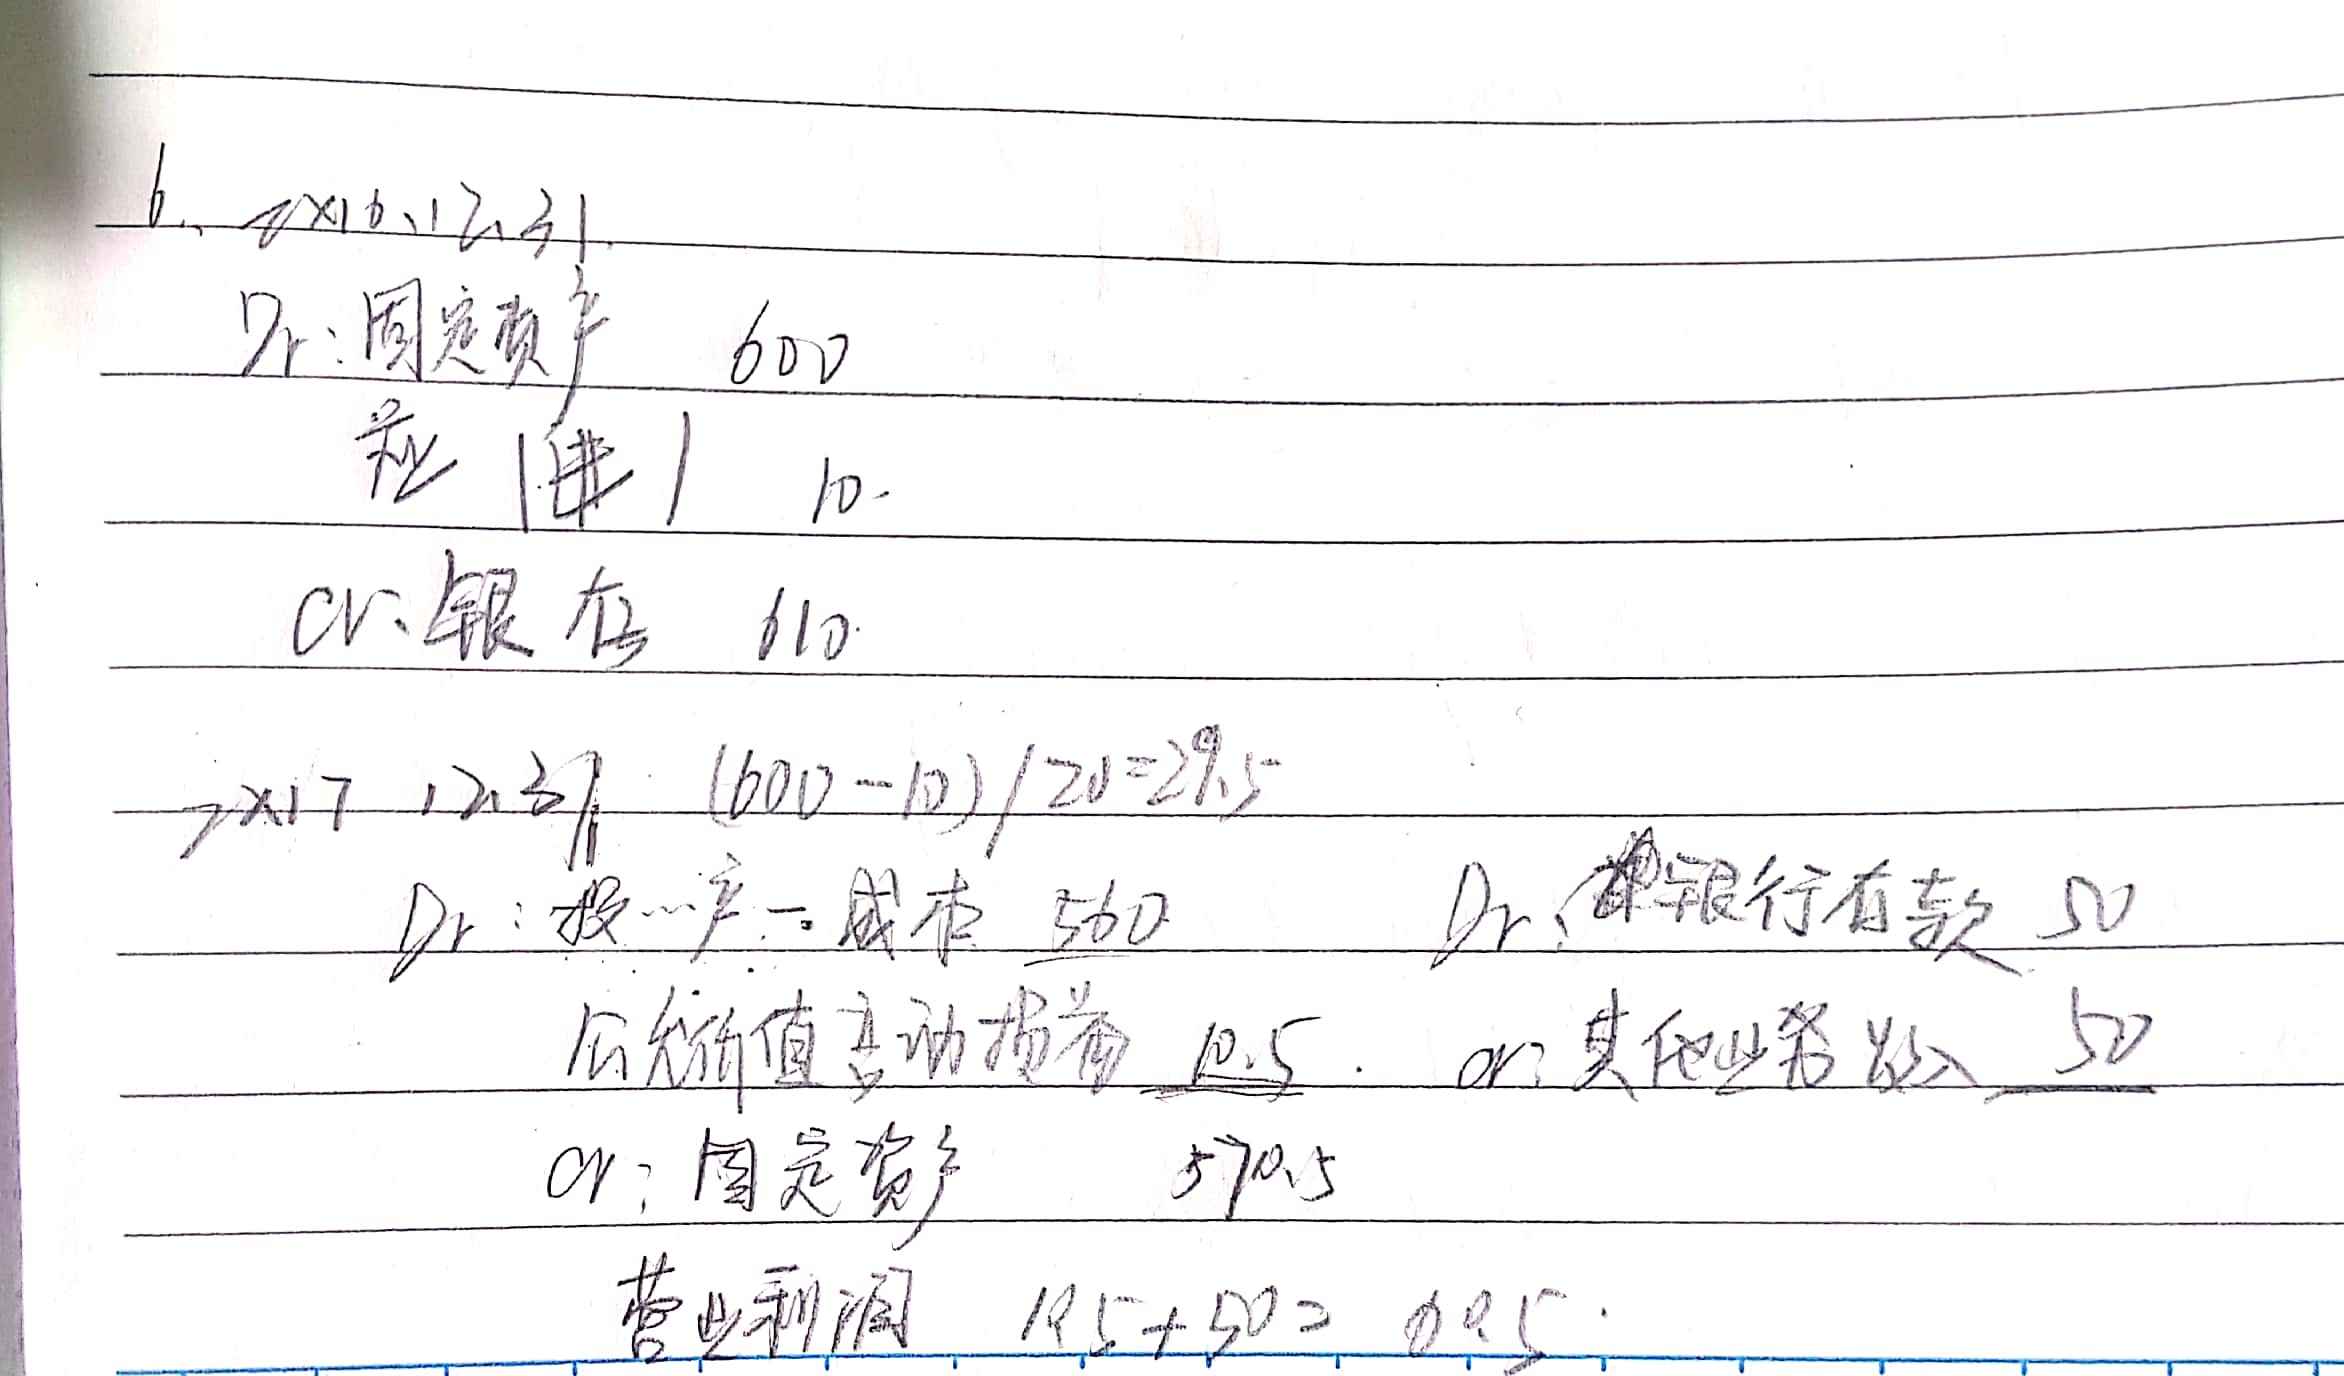 6. 2×16.12.31.
Dr: 固定资产 600
应 (进) 10.
Cr: 银存 610.
2×17 12.31 (600-10)/20=29.5
Dr: 投…产—成本 560
公允价值变动损益 10.5.
Cr: 固定资产 570.5
Dr: 银行存款 50
Cr: 其他业务收入 50
营业利润 +50=